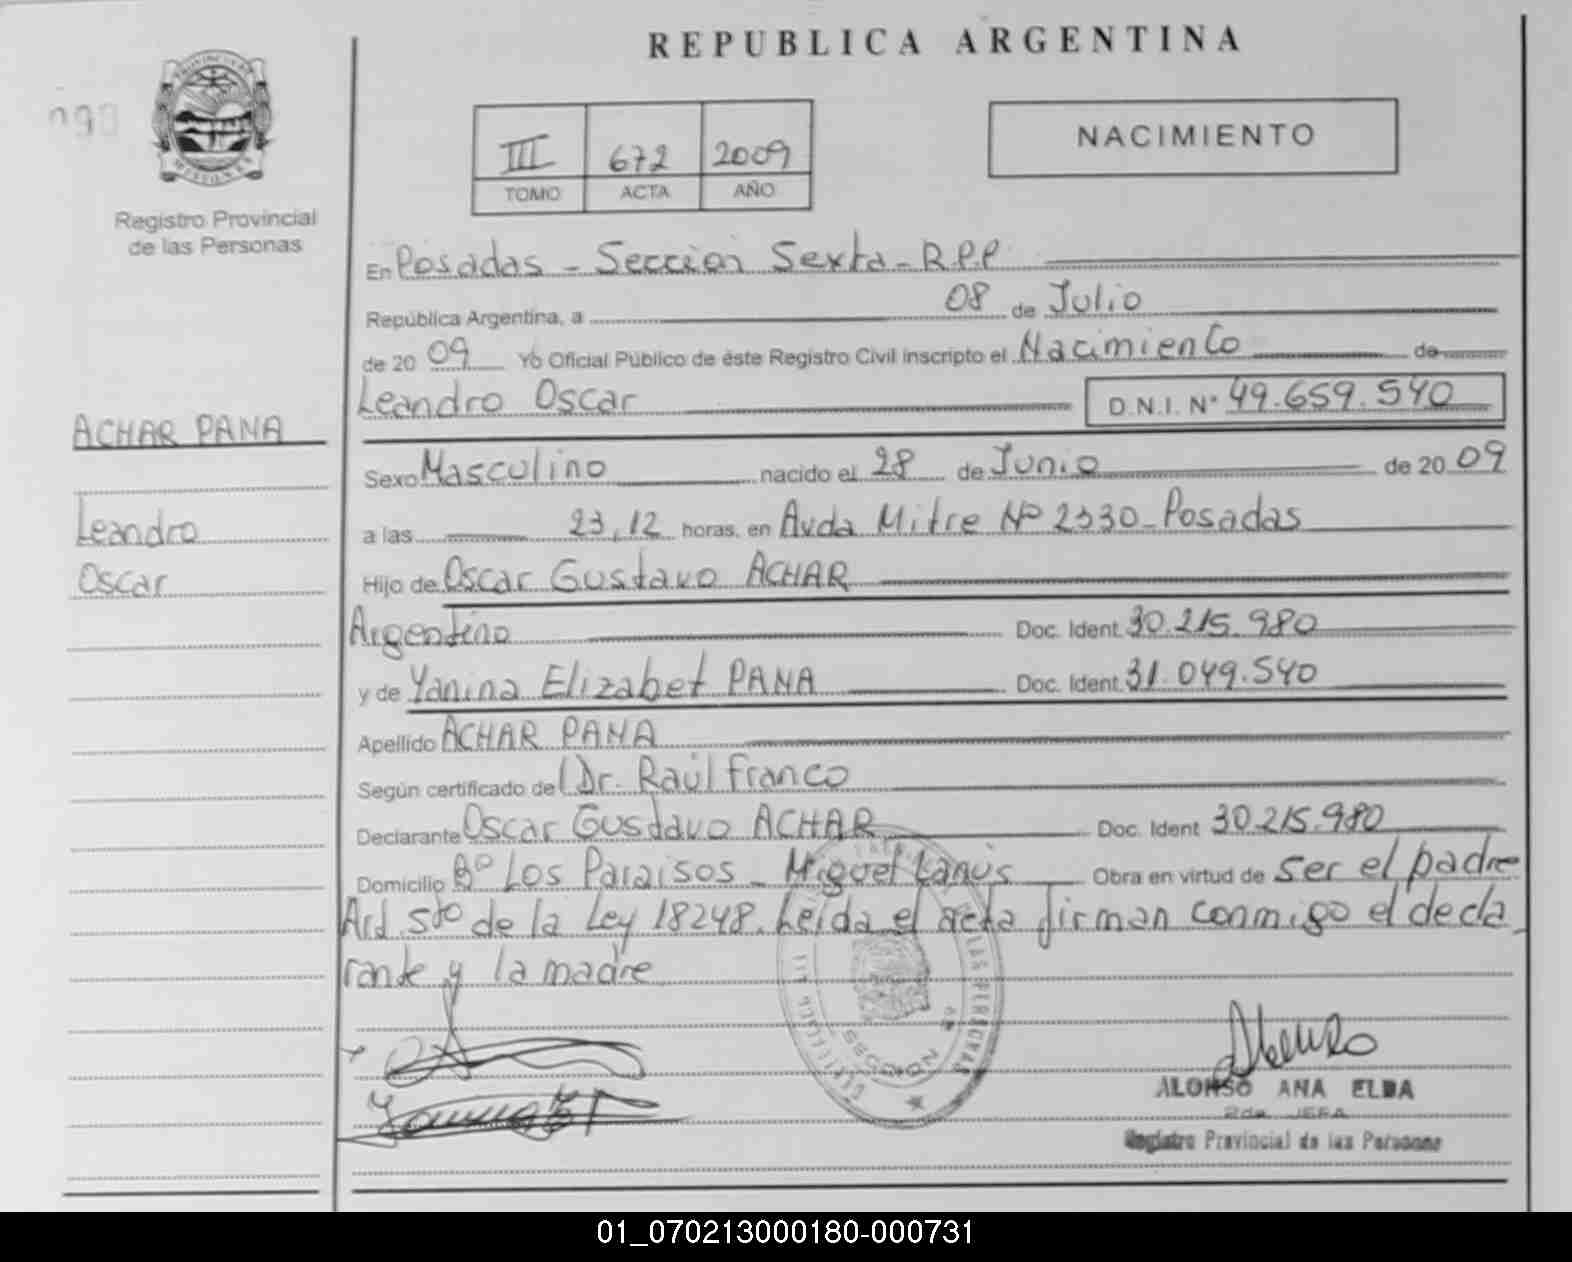 REPUBLICA ARGENTINA
090
PROVINCIA DE
MISIONES
Registro Provincial
de las Personas
III 672 2009
TOMO ACTA AÑO
NACIMIENTO
En Posadas - Sección Sexta - R.P.P
República Argentina, a 08 de Julio
de 20 09 Yo Oficial Público de éste Registro Civil inscripto el Nacimiento de
Leandro Oscar D.N.I. N° 49.659.540
ACHAR PANA
Sexo Masculino nacido el 28 de Junio de 20 09
Leandro
a las 23,12 horas, en Avda Mitre Nº 2330 - Posadas
Oscar
Hijo de Oscar Gustavo ACHAR
Argentino Doc. Ident. 30.215.980
y de Yanina Elizabet PANA Doc. Ident. 31.049.540
Apellido ACHAR PANA
Según certificado de Dr. Raúl Franco
Declarante Oscar Gustavo ACHAR Doc. Ident 30.215.980
Domicilio Bº Los Paraisos - Miguel Lanús Obra en virtud de ser el padre
Art. 5to de la Ley 18248. Leida el acta firman conmigo el decla
rante y la madre
ALONSO ANA ELBA
2da. JEFA
Registro Provincial de las Personas
01_070213000180-000731